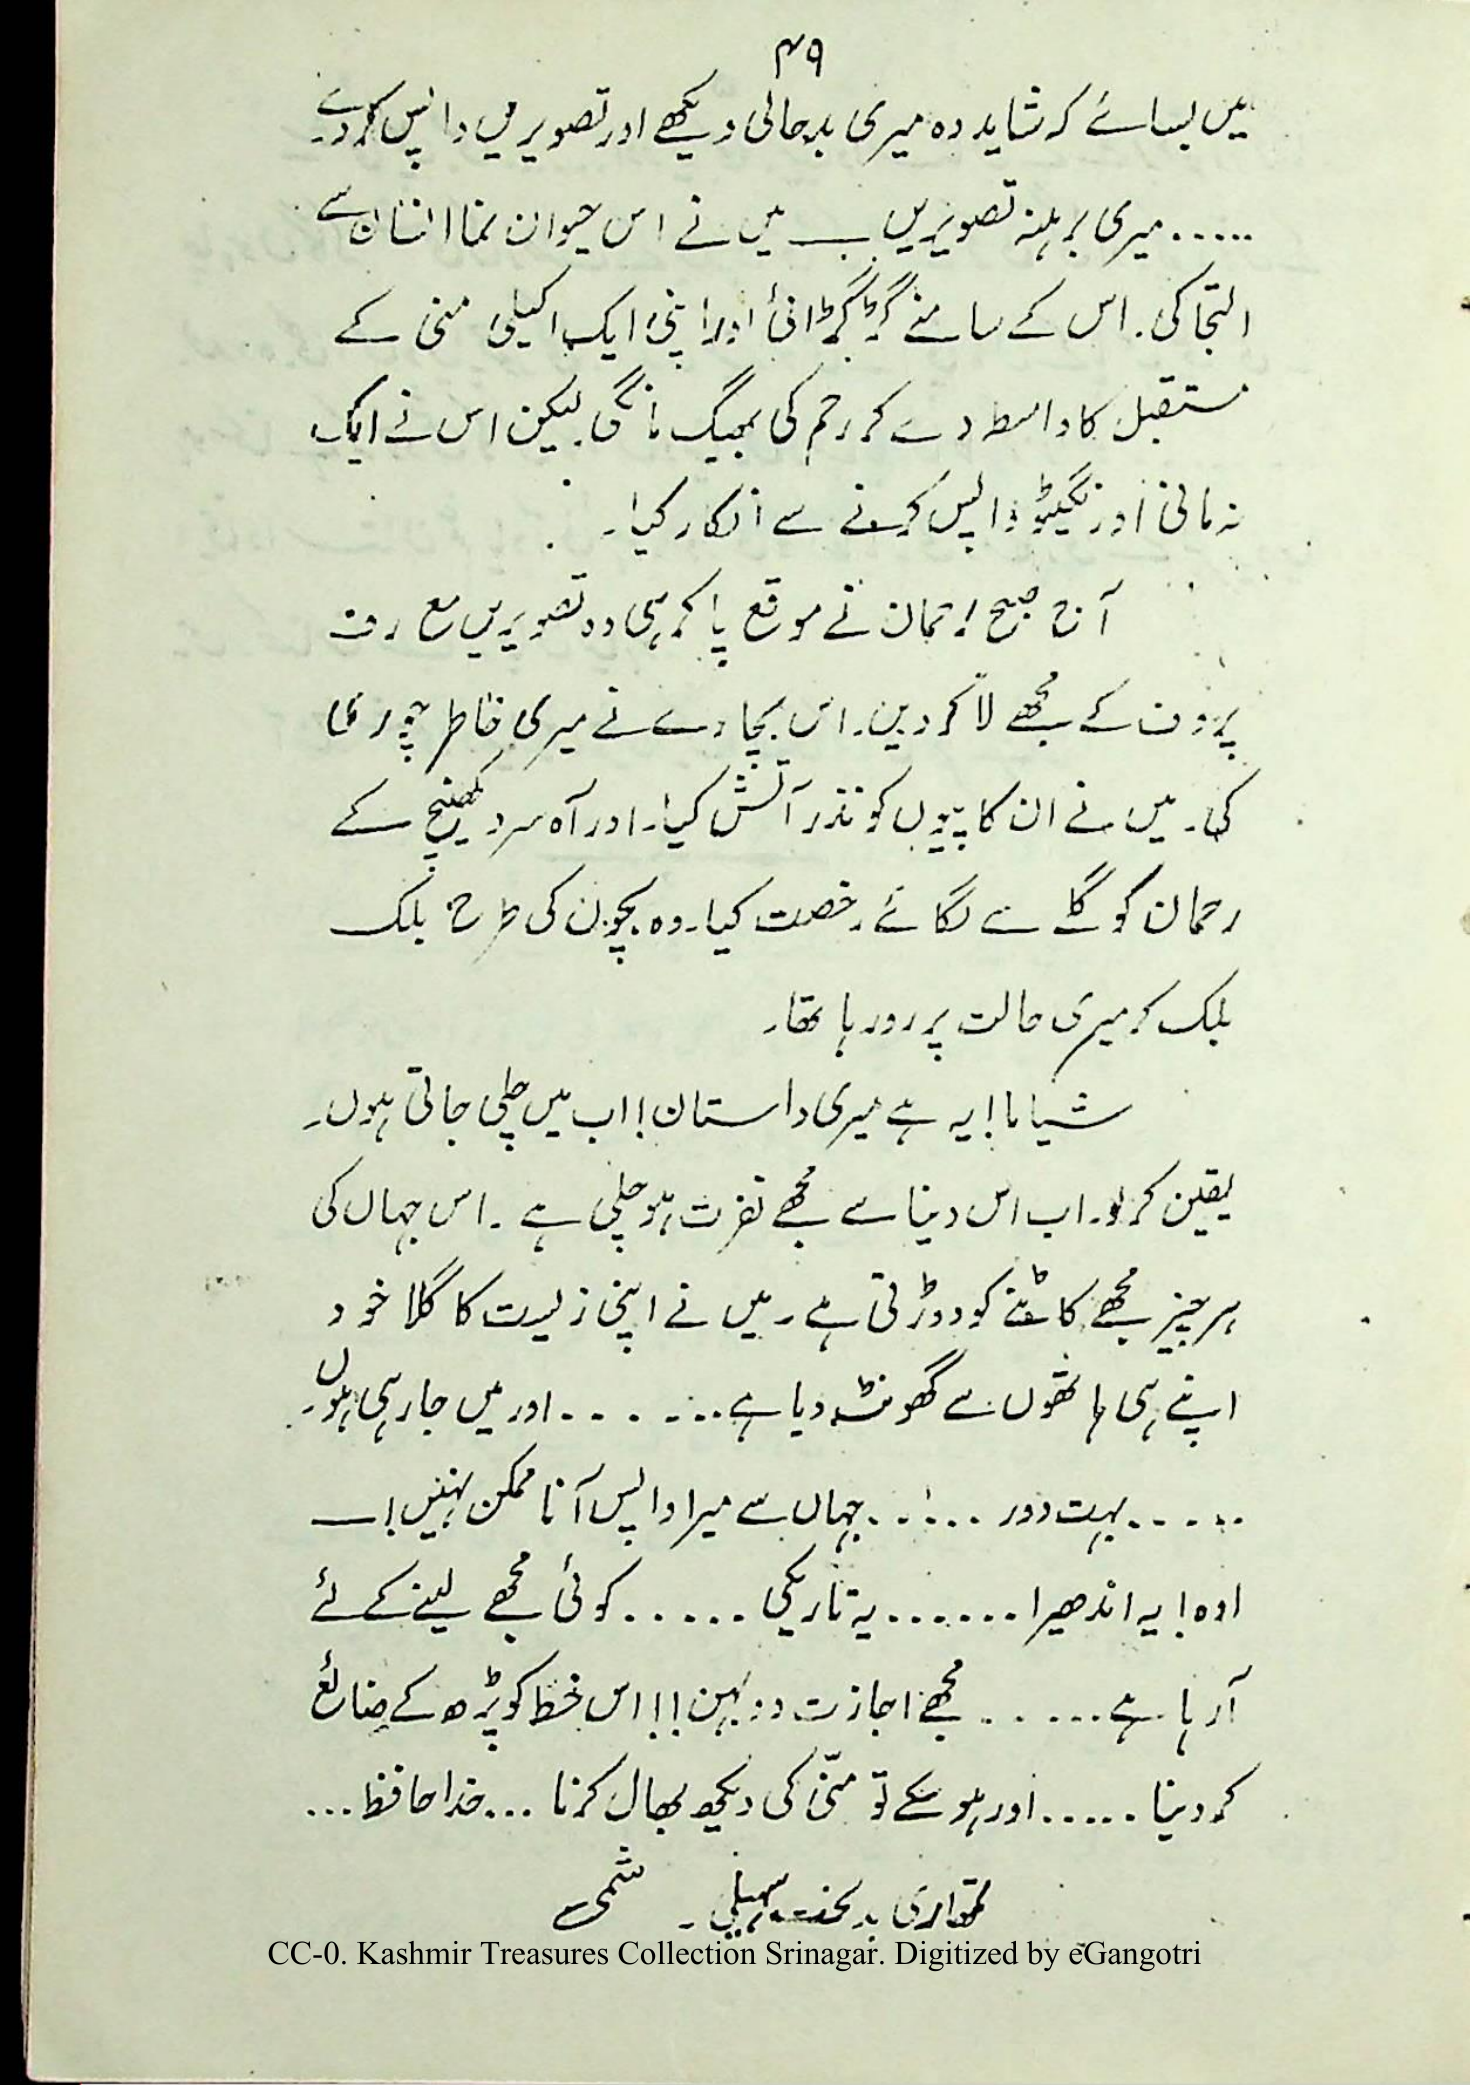 ۴۹
میں بسائے کہ شاید وہ میری بدحالی دیکھے اور تصویریں واپس کردے۔
..... میری برہنہ تصویریں ــ میں نے اس حیوان نما انسان سے
التجا کی۔ اس کے سامنے گڑگڑائی اور اپنی ایک اکیلی منی کے
مستقبل کا واسطہ دے کر رحم کی بھیگ مانگی۔ لیکن اس نے ایک
نہ مانی اور نگیٹیو واپس کرنے سے انکار کیا۔
آج صبح رحمان نے موقع پا کر ہی وہ تصویریں مع رف
پروف کے مجھے لا کر دیں۔ اس بچارے نے میری خاطر چوری
کی۔ میں نے ان کاپیوں کو نذر آتش کیا۔ اور آہ سرد کھینچ کے
رحمان کو گلے سے لگائے رخصت کیا۔ وہ بچوں کی طرح بلک
بلک کر میری حالت پر رو رہا تھا۔
شیاما! یہ ہے میری داستان! اب میں چلی جاتی ہوں۔
یقین کرلو۔ اب اس دنیا سے مجھے نفرت ہو چلی ہے۔ اس جہاں کی
ہر چیز مجھے کاٹنے کو دوڑتی ہے۔ میں نے اپنی زلیست کا گلا خود
اپنے ہی ہاتھوں سے گھونٹ دیا ہے...... اور میں جا رہی ہوں۔
..... بہت دور ..... جہاں سے میرا واپس آنا ممکن نہیں! ــ
اوہ! یہ اندھیرا ...... یہ تاریکی ..... کوئی مجھے لینے کے لئے
آ رہا ہے ..... مجھے اجازت دو بہن!! اس خط کو پڑھ کے ضائع
کر دینا ..... اور ہو سکے تو منّی کی دیکھ بھال کرنا ... خدا حافظ ...
تمہاری بد بخت سہیلی۔ شمی
CC-0. Kashmir Treasures Collection Srinagar. Digitized by eGangotri